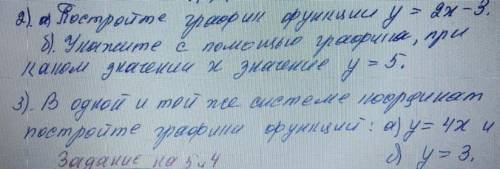 2). а) Постройте график функции y = 2x-3.
б). Укажите с помощью графика, при
каком значении x значение y = 5.
3). В одной и той же системе координат
постройте графики функций: а) y = 4x и
Задание на 5 и 4 б) y = 3.